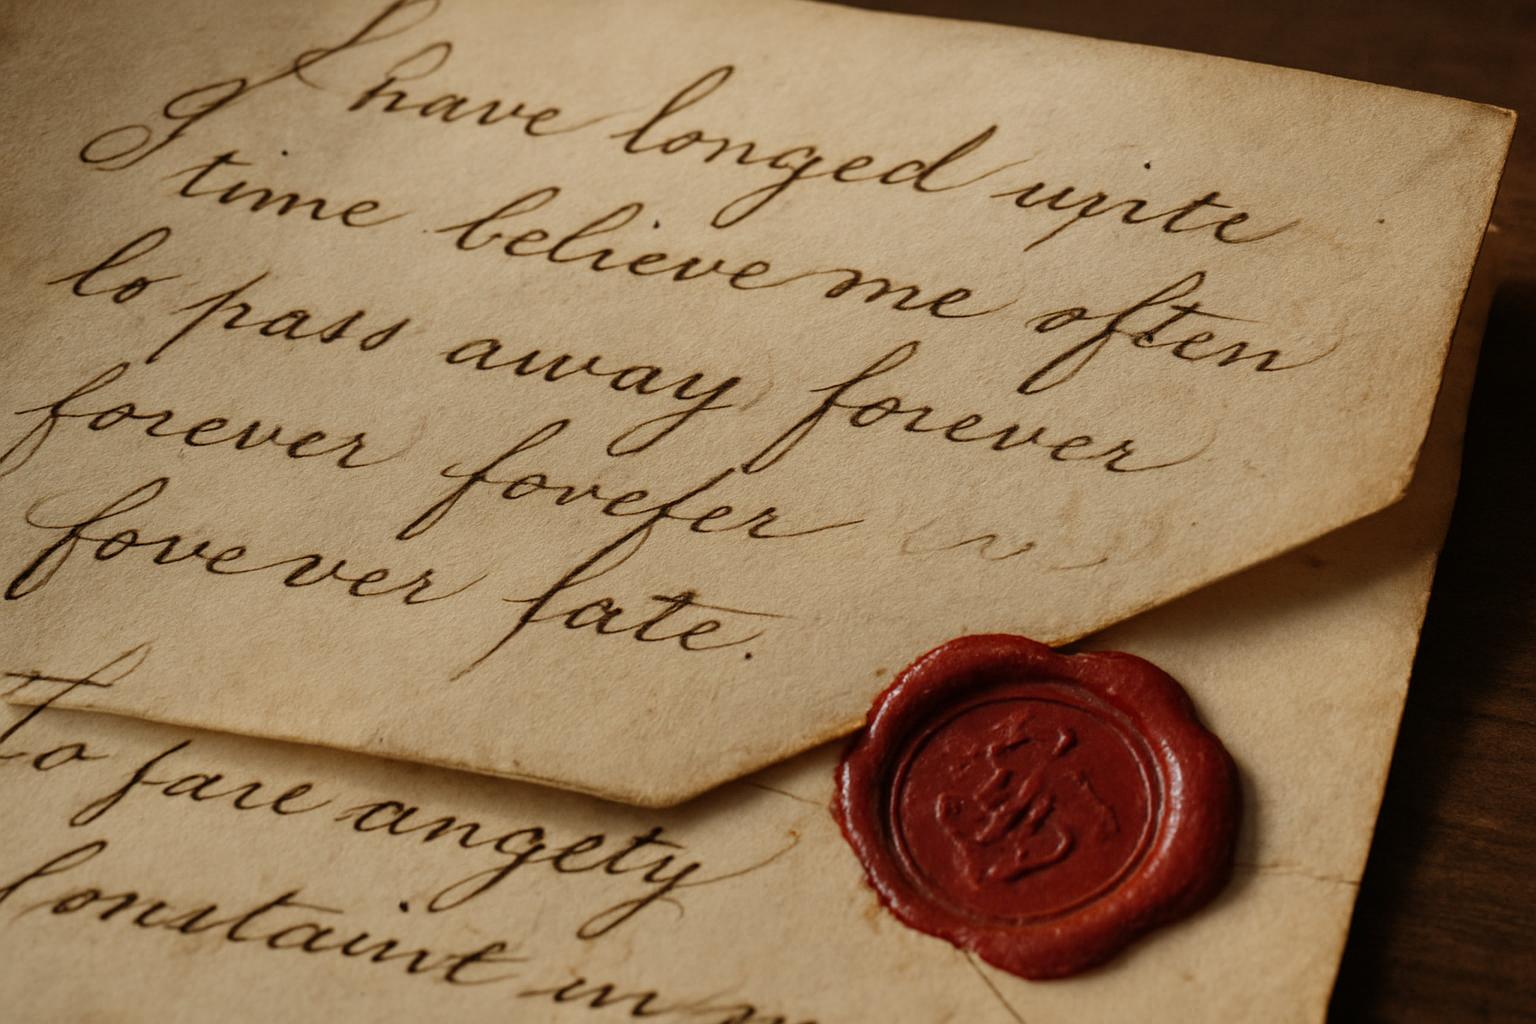 I have longed upite
I time believe me often
lo pass away forever
forever forefer
forever fate.
To fare angety
Constaint in